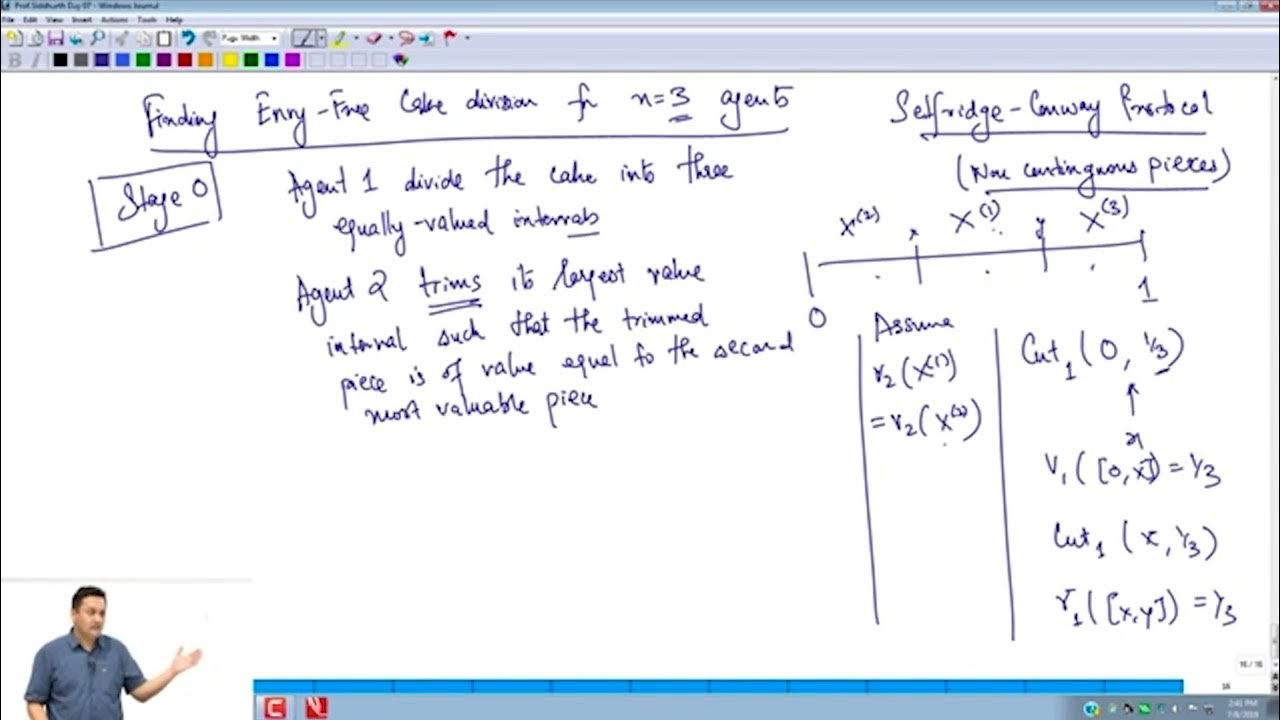 Prof.Siddhurth Day 07 - Windows Journal
File Edit View Insert Actions Tools Help
Page Width
Finding Envy-Free Cake division fr n=3 agents
Selfridge-Conway Protocol
(Non contingnous pieces)
Stage 0
Agent 1 divide the cake into three
equally-valued intervals
X(2) x X(1) y X(3)
0 1
Agent 2 trims its largest value
interval such that the trimmed
piece is of value equal to the second
most valuable piece
Assume
v2(X(1))
= v2(X(2))
Cut1(0, 1/3)
↑
x
V1([0,x]) = 1/3
Cut1(x, 1/3)
V1([x,y]) = 1/3
16 / 16
16
2:41 PM
7/8/2019